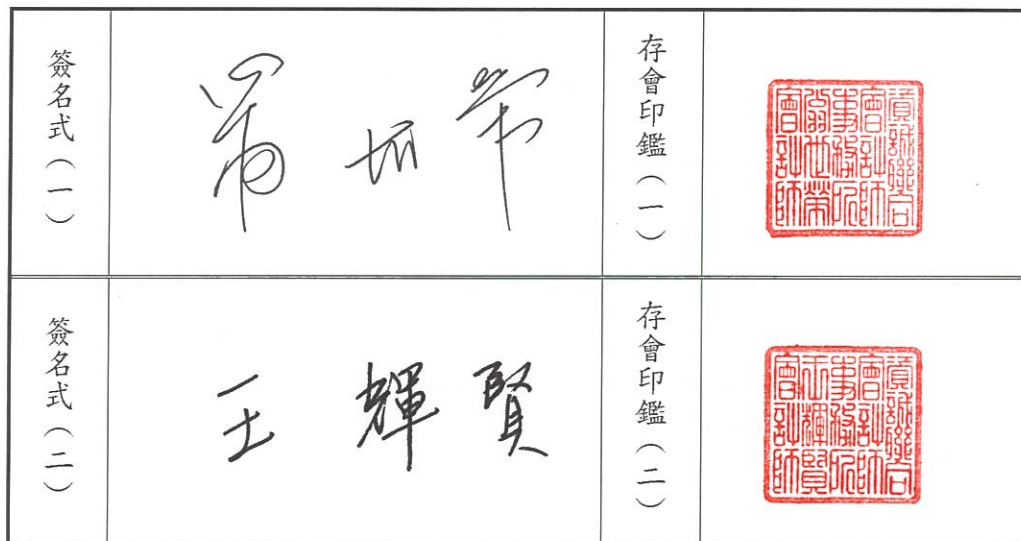 簽名式（一）
翁世榮
存會印鑑（一）
資誠聯合
會計師
事務所
翁世榮
會計師
簽名式（二）
王輝賢
存會印鑑（二）
資誠聯合
會計師
事務所
王輝賢
會計師